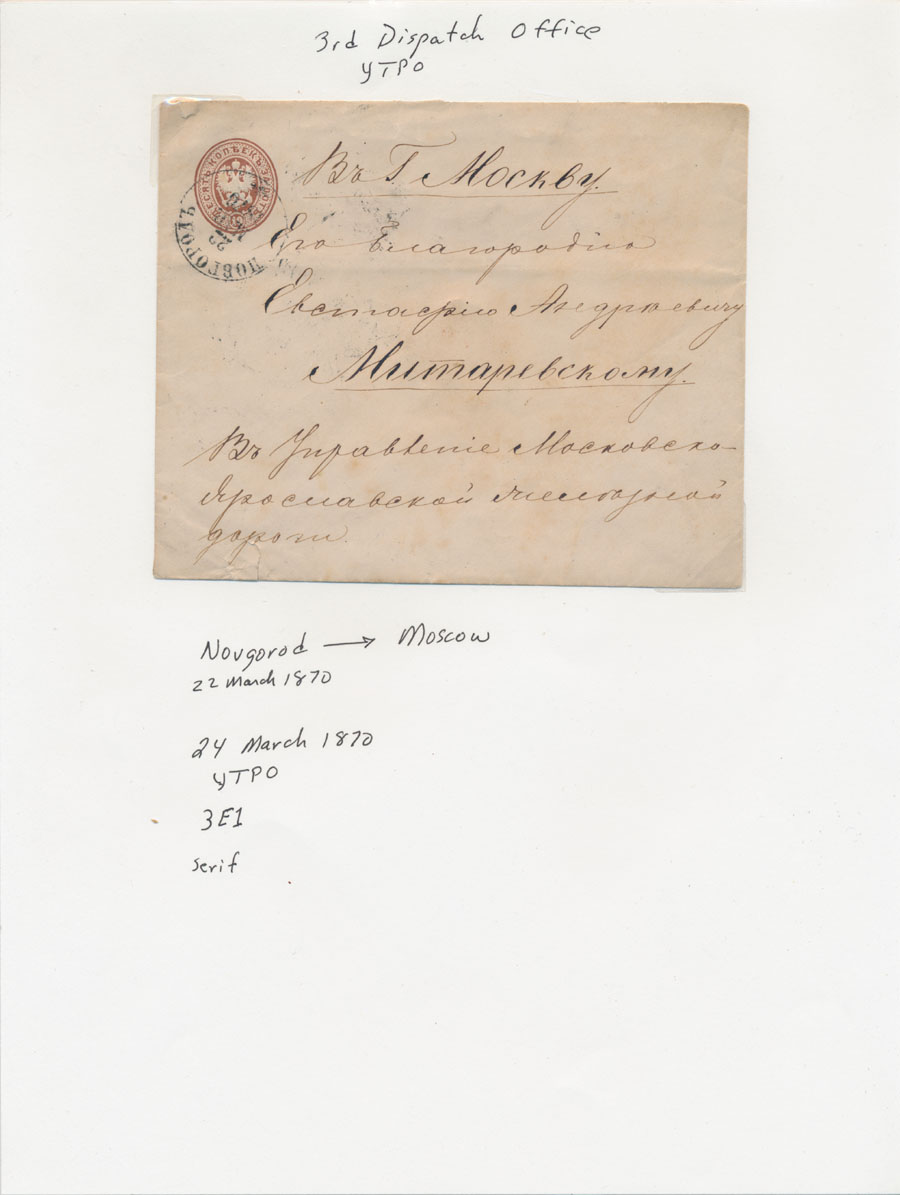 3rd Dispatch Office
УТРО
ДЕСЯТЬ КОПѢЕКЪ ЗА ЛОТЪ
НОВГОРОДЪ
22
Въ Г Москву.
Его Благородію
Евстафію Андреевичу
Митаревскому.
Въ Управленіе Московско-
Ярославской желѣзной
дороги.
Novgorod → Moscow
22 March 1870
24 March 1870
УТРО
3E1
serif